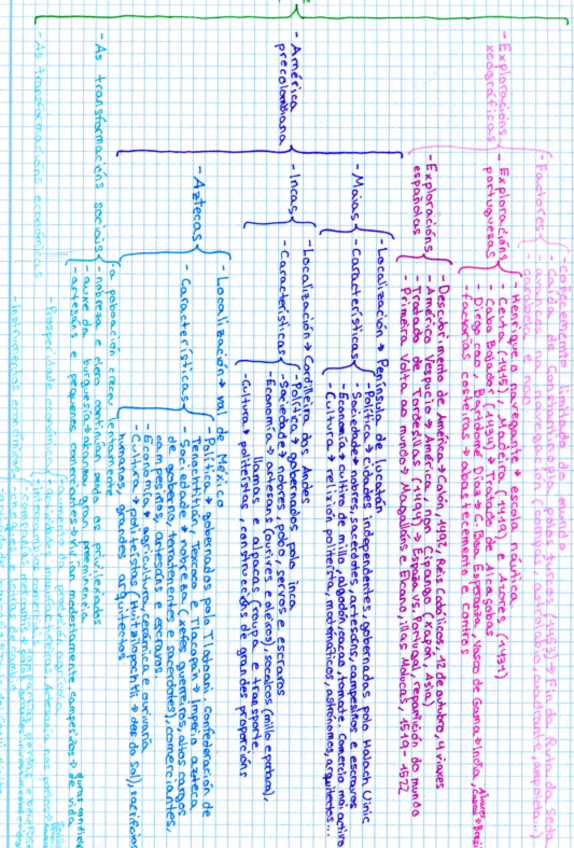 - Exploracións xeográficas
- Factores
- coñecemento limitado do mundo
- Caída de Constantinopla polos turcos (1453) → Fin da Ruta da Seda
- avances na navegación (compás, astrolabio, cuadrante, ampoleta...)
- carabela e nao
- Exploracións portuguesas
- Henrique o navegante → escola náutica
- Ceuta (1415), Madeira (1419) e Azores (1431)
- Cabo Bojador (1434) → Tratado de Alcaçobas
- Diego Cao, Bartolomé Díaz → C. Boa Esperanza, Vasco de Gama → India,
- factorías costeiras → abastecemento e control
- Exploracións españolas
- Descubrimento de América → Colón, 1492, Reis Católicos, 12 de outubro, 4 viaxes
- Américo Vespucio → América, non Cipango (Xapón, Asia)
- Tratado de Tordesillas (1494) → España vs. Portugal, repartición do mundo
- Primeira Volta ao mundo → Magalláns e Elcano, illas Molucas, 1519-1522
- América precolombiana
- Maias
- Localización → Península de Iucatán
- Características
- Política → cidades independentes, gobernados polo Halach Uinic
- Sociedade → nobres, sacerdotes, artesáns, campesiños e escravos
- Economía → cultivo de millo, algodón, cacao, tomate. Comercio moi activo
- Cultura → relixión politeísta, matemáticos, astrónomos, arquitectos...
- Incas
- Localización → Cordilleira dos Andes
- Características
- Política → gobernados polo inca
- Sociedade → nobres, pobo, servos e escravos
- Economía → artesáns (ourives e oleiros), socalcos (millo e pataca),
llamas e alpacas (roupa e transporte
- Cultura → politeístas, construccións de grandes proporcións
- Aztecas
- Localización → val de México
- Características
- Política → gobernados polo Tlatoani, confederación de
Tenochtitlán, Texcoco e Tlacopán → Imperio azteca
- Sociedade → nobreza (xefes guerreiros, altos cargos
de goberno, terratenentes e sacerdotes), comerciantes,
campesiños, artesáns e escravos
- Economía → agricultura, cerámica e ourivaría
- Cultura → politeístas (Huitzilopochtli → deus do Sol), sacrificios
humanos, grandes arquitectos
- As transformacións sociais
- a poboación creceu lentamente
- nobreza e clero continúan sendo os privilexiados
- auxe da burguesía → alcanzou gran preeminencia
- artesáns e pequenos comerciantes → vivían modestamente campesiños →
de vida
- As transformacións económicas
- Prosperidade económica
- aumento da produción agrícola
- intercambios comerciais
- Instrumentos económicos